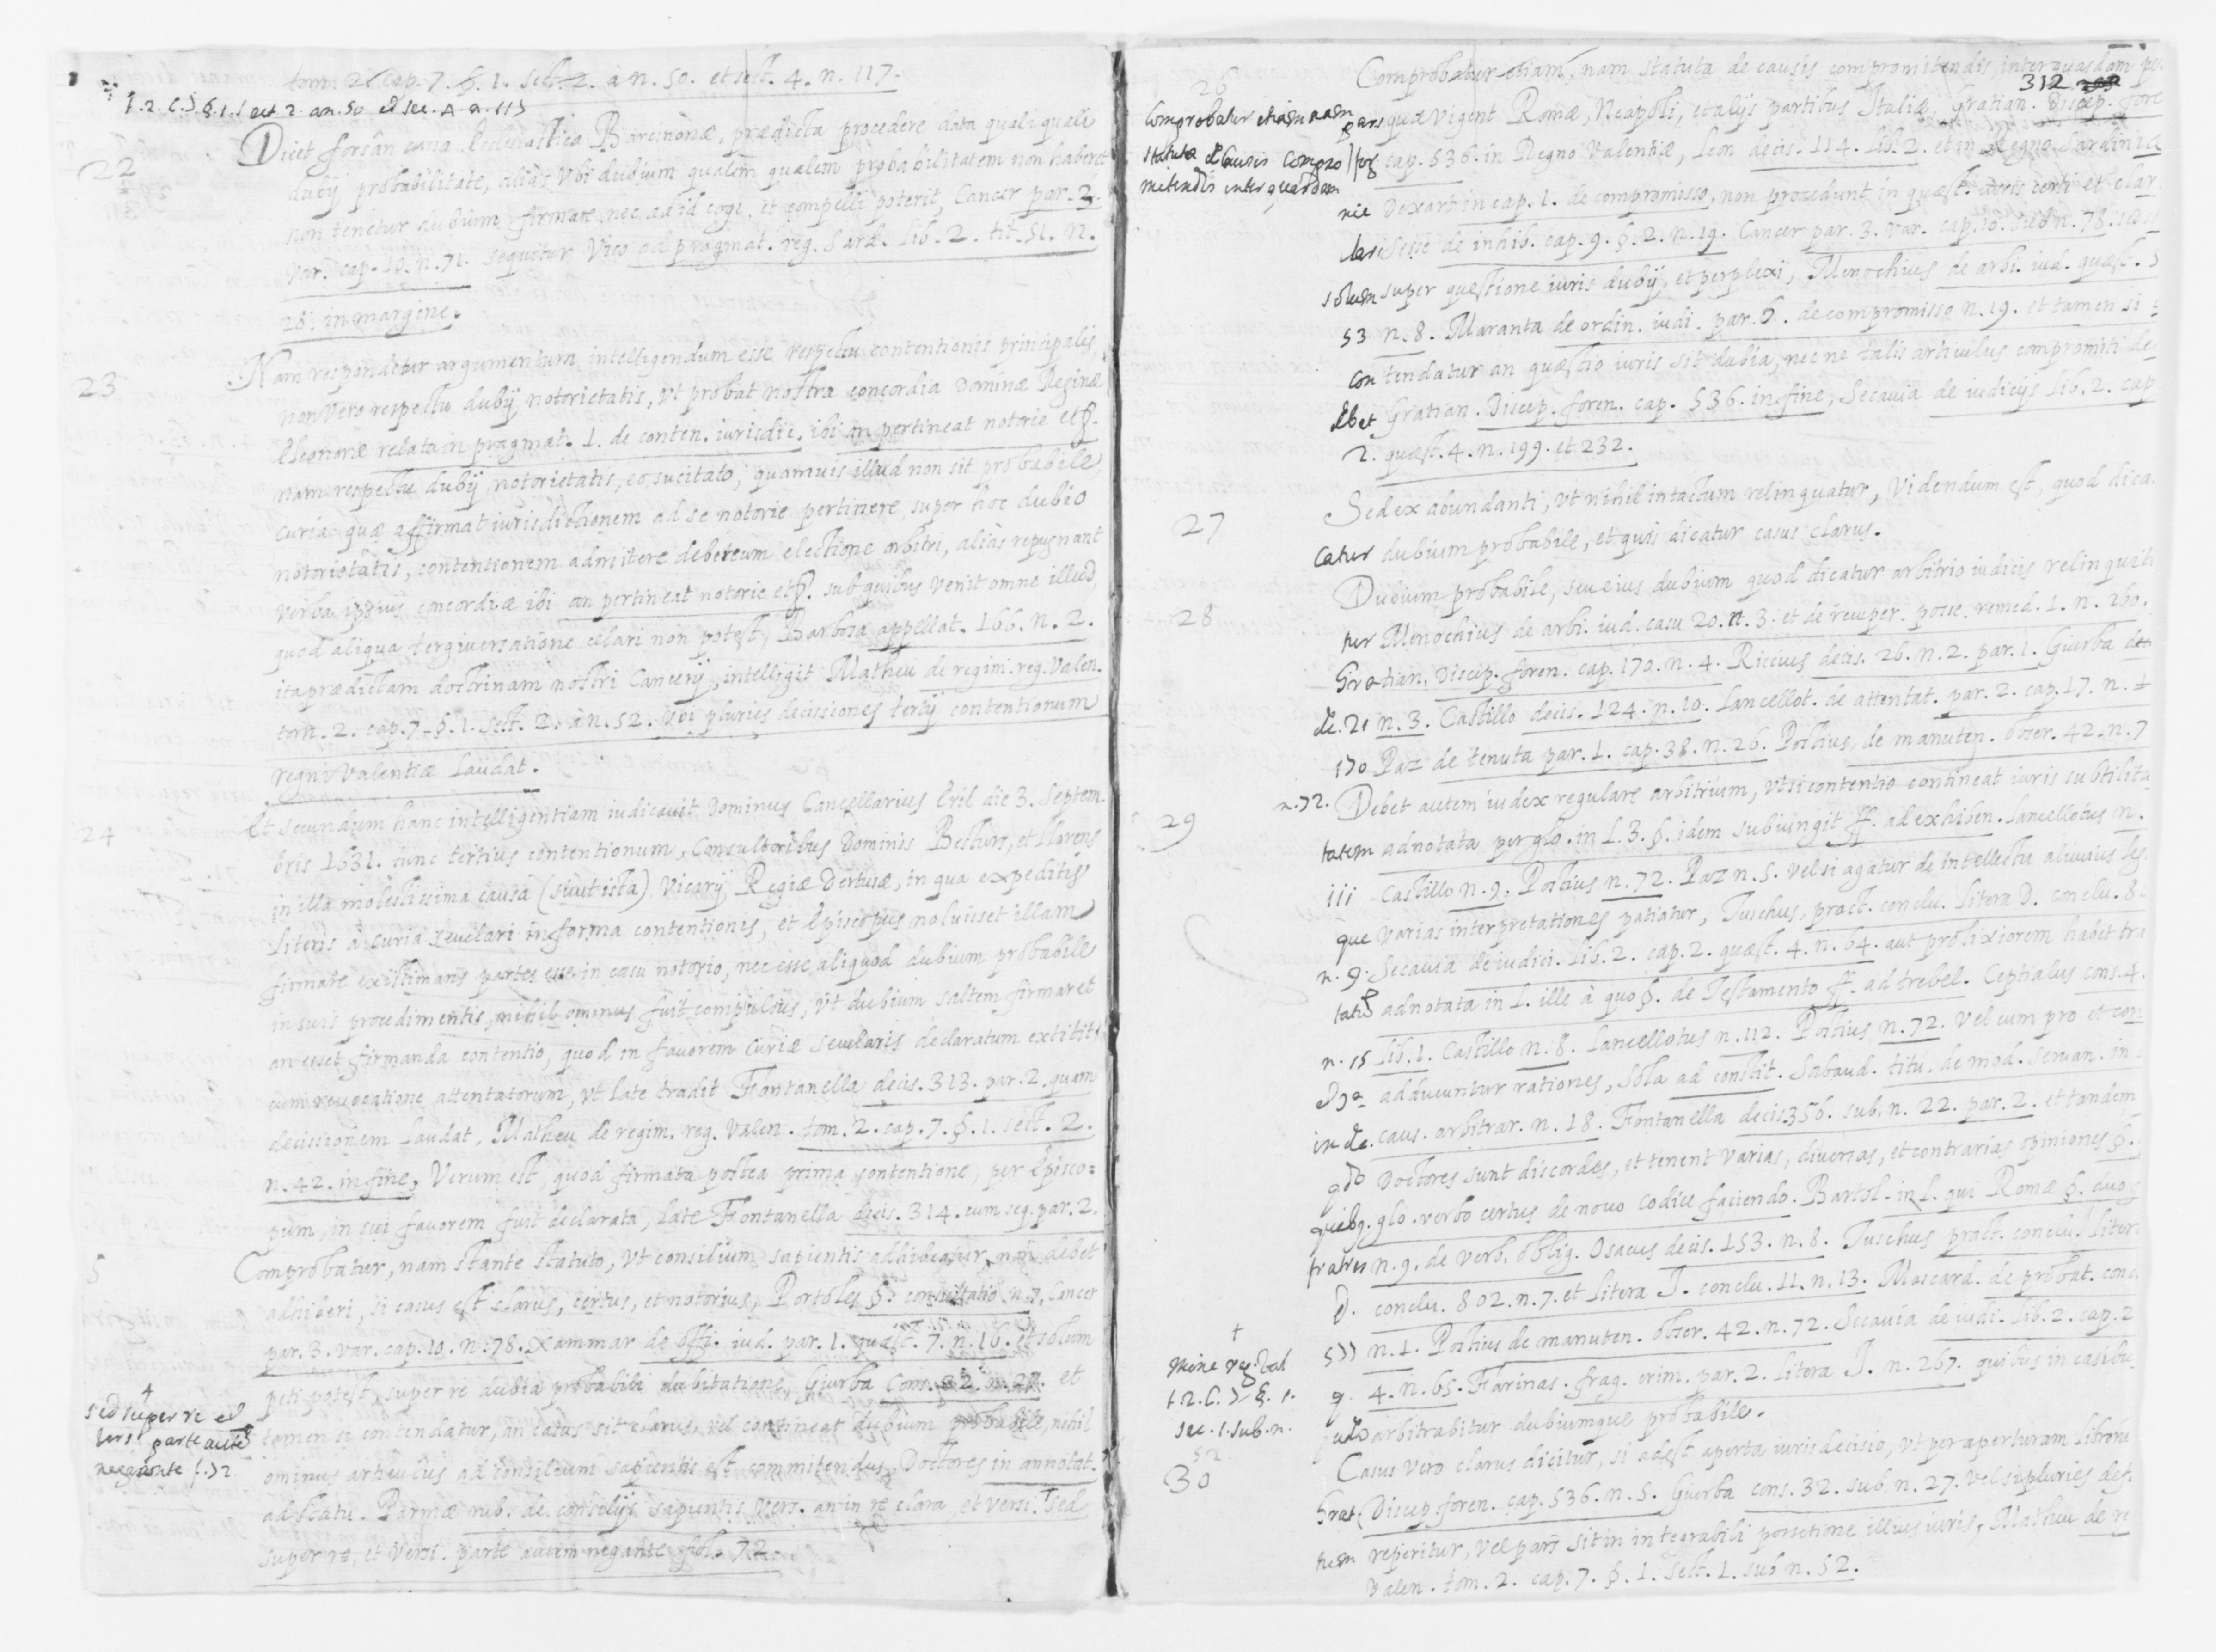 tom. 2. cap. 7. §. 1. sect. 2. à n. 50. et sect. 4. n. 117.
t. 2. c. 7. §. 1. sect 2. an. 50 et sec. 4 n. 117
22
Dicet forsân curia Ecclesiastica Barcinonæ, prædicta procedere data quali quali
dubij probabilitate, aliàs vbi dubium qualem qualem probabilitatem non haberet
non tenetur dubium firmare, nec ad id cogi, et compelli poterit, Cancer par. 3.
var. cap. 10. n. 71. sequitur Vico ad pragmat. reg. Sard. lib. 2. tit. 51. n.
28. in margine.
23
Nam respondetur argumentum intelligendum esse respectu contentionis principalis
non vero respectu dubij notorietatis, vt probat nostra concordia Dominæ Reginæ
Eleonoræ relata in pragmat. 1. de conten. iurisdic. ibi an pertineat notorie etc.
nam respectu dubij notorietatis, eo sucitato, quamuis illud non sit probabile
curia quæ affirmat iurisdictionem ad se notorie pertinere super hoc dubio
notorietatis, contentionem admitere debet cum electione arbitri, aliàs repugnant
verba ipsius concordiæ ibi an pertineat notorie etc. sub quibus venit omne illud,
quod aliqua tergiuersatione celari non potest, Barbosa appellat. 166. n. 2.
ita prædictam doctrinam nostri Cancerij, intelligit Matheu de regim. reg. Valen.
tom. 2. cap. 7. §. 1. sect. 2. à n. 52. vbi pluries decissiones tertij contentionum
regni Valentiæ laudat.
24
Et secundum hanc intelligentiam iudicauit Dominus Cancellarius Eril die 3. Septem
bris 1631. tunc tertius contentionum, Consultoribus Dominis Besturs, et Llarens
in illa molestissima causa (sicut ista) Vicarij Regiæ Dertusæ, in qua expeditis
literis à curia seculari in forma contentionis, et Episcopus noluisset illam
firmare existimans partes esse in casu notorio, nec esse aliquod dubium probabile
in suis procedimentis, nihil ominus fuit compulsus, vt dubium saltem firmaret
an esset firmanda contentio, quod in fauorem curiæ secularis declaratum extitit
cum reuocatione attentatorum, vt late tradit Fontanella decis. 313. par. 2. quam
decissionem laudat, Matheu de regim. reg. Valen. tom. 2. cap. 7. §. 1. sect. 2.
n. 42. in fine, Verum est, quod firmata postea prima contentione, per Episco=
pum, in sui fauorem fuit declarata, late Fontanella decis. 314. cum seq. par. 2.
5
Comprobatur, nam stante statuto, vt consilium sapientis adhibeatur, non debet
adhiberi, si casus est clarus, certus, et notorius, Portoles §. consultatio n. 7. Cancer
par. 3. var. cap. 10. n. 78. Xammar de offi. iud. par. 1. quæst. 7. n. 16. et solum
peti potest, super re dubia probabili dubitatione, Giurba cons. 32. n. 27. et
tamen si contendatur, an casus sit clarus, vel contineat dubium probabile, nihil
ominus articulus ad consilium sapientis est commitendus, Doctores in annotat.
ad statu. Parmæ rub. de consilijs sapientis vers. an in re clara, et versi. sed
super re, et versi. parte autem negante fol. 72.
sed super re et
vers parte aute
negante f. 72
312
26
Comprobatur etiam, nam statuta de causis compromitendis, inter quasdam per
Comprobatur etiam nam
statuta de causis compro
mitendis inter quasdam
pars quæ vigent Romæ, Neapoli, et alijs partibus Italiæ, Gratian. Discep. fore
for cap. 536. in Regno Valentiæ, Leon decis. 114. lib. 2. et in Regno Sardinia
nie Dexart in cap. 1. de compromisso, non procedunt in quæst. iuris certi et clar
lari Sesse de inhib. cap. 9. §. 2. n. 19. Cancer par. 3. var. cap. 10. sub n. 78. sed
solum super quæstione iuris dubij, et perplexi, Menochius de arbi. iud. quæst. 5
53 n. 8. Maranta de ordin. iudi. par. 6. de compromisso n. 19. et tamen si
con tendatur an quæstio iuris sit dubia, nec ne talis articulus compromiti de
debet Gratian. Discep. foren. cap. 536. in fine, Secauia de iudicijs lib. 2. cap
2. quæst. 4. n. 199. et 232.
27
Sed ex abundanti, vt nihil intactum relinquatur, Videndum est, quod dica
catur dubium probabile, et quis dicatur casus clarus.
28
Dubium probabile, seu eius dubium quod dicatur arbitrio iudicis relinquit
tur Menochius de arbi. iud. casu 20. n. 3. et de recuper. posse. remed. 1. n. 260.
Gratian. Discep. foren. cap. 170. n. 4. Riccius decis. 26. n. 2. par. 1. Giurba de
de. 21 n. 3. Castillo decis. 124. n. 10. Lancellot. de attentat. par. 2. cap. 17. n. 1
170 Paz de tenuta par. 1. cap. 38. n. 26. Postius de manuten. obser. 42. n. 7
29
n. 72. Debet autem iudex regulare arbitrium, vt si contentio contineat iuris subtilita
tatem adnotata per glo. in l. 3. §. idem subiungit ff. ad exhiben. Lancellotus n.
111 Castillo n. 9. Postius n. 72. Paz n. 5. vel si agatur de intellectu alicuius leg
que varias interpretationes patiatur, Tuschus, pract. conclu. litera D. conclu. 8
n. 9. Secauia de iudici. lib. 2. cap. 2. quæst. 4. n. 64. aut prolixiorem habet tra
tatus adnotata in l. ille à quo §. de Testamento ff. ad trebel. Cephalus cons. 4.
n. 15 lib. 1. Castillo n. 8. Lancellotus n. 112. Postius n. 72. vel cum pro et con
adducuntur rationes, Sola ad constit. Sabaud. titu. de mod. seruan. in
in de. caus. arbitrar. n. 18. Fontanella decis. 356. sub. n. 22. par. 2. et tandem
qdo Doctores sunt discordes, et tenent varias, diuersas, et contrarias opiniones §.
quibq. glo. verbo certus de nouo codice faciendo. Bartol. in l. qui Romæ §. duo
fratres n. 9. de verb. oblig. Osacus decis. 153. n. 8. Tuschus pract. conclus. liter
D. conclu. 802. n. 7. et litera I. conclu. 11. n. 13. Mascard. de probat. conc
577 n. 1. Postius de manuten. obser. 42. n. 72. Secauia de iudi. lib. 2. cap. 2
q. 4. n. 65. Farinas. frag. crim. par. 2. litera I. n. 267. quibus in casibu
arbitrabitur dubiumque probabile.
mine reg. Val
t. 2. C. 7 §. 1.
sec. 1. sub. n.
52
30
Casus vero clarus dicitur, si adest aperta iuris decisio, vt per aperturam librorum
Grat. Discep. foren. cap. 536. n. 5. Giurba cons. 32. sub. n. 27. vel si pluries det
tum reperitur, vel pars sit in integrabili possetione illius iuris, Matheu de re
Valen. tom. 2. cap. 7. §. 1. sect. 1. sub n. 52.